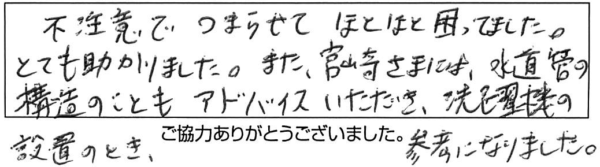 不注意で つまらせて ほとほと困ってました。
とても助かりました。また、宮崎さまには、水道管の
構造のことも アドバイスいただき、洗濯機の
設置のとき、 参考になりました。
ご協力ありがとうございました。